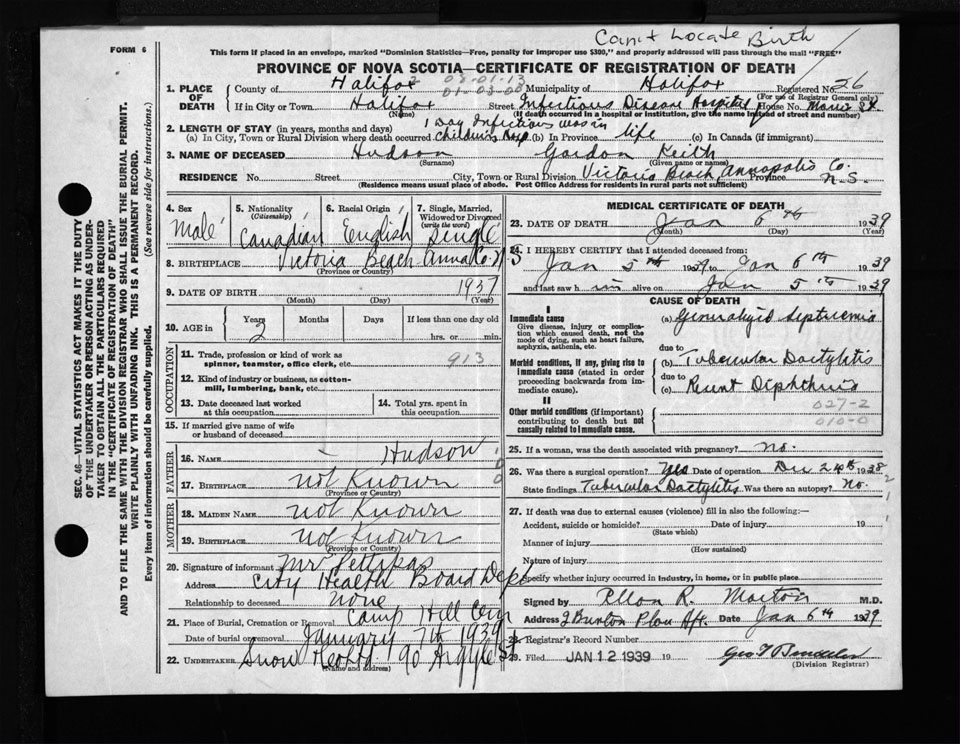 Can't Locate Birth
FORM 6
This form if placed in an envelope, marked "Dominion Statistics—Free, penalty for improper use $300," and properly addressed will pass through the mail "FREE"
PROVINCE OF NOVA SCOTIA—CERTIFICATE OF REGISTRATION OF DEATH
1. PLACE OF DEATH
County of Halifax 2 03-01-13 Municipality of Halifax Registered No. 26
01-03-00 (For use of Registrar General only)
If in City or Town Halifax Street Infectious Disease Hospital House No. Morris St
(Name) (If death occurred in a hospital or institution, give the name instead of street and number)
1 Day Infectious was in
2. LENGTH OF STAY (in years, months and days)
(a) In City, Town or Rural Division where death occurred Childrens Hosp. (b) In Province life (c) In Canada (if immigrant)
3. NAME OF DECEASED Hudson Gordon Keith
(Surname) (Given name or names)
RESIDENCE No. Street City, Town or Rural Division Victoria Beach, Annapolis Co. Province N.S.
(Residence means usual place of abode. Post Office Address for residents in rural parts not sufficient)
4. Sex Male
5. Nationality (Citizenship) Canadian
6. Racial Origin English
7. Single, Married, Widowed or Divorced (write the word) Single
8. BIRTHPLACE Victoria Beach Anna Co N S
(Province or Country)
9. DATE OF BIRTH 1937
(Month) (Day) (Year)
10. AGE in Years 2 Months Days If less than one day old
hrs. or min.
OCCUPATION
11. Trade, profession or kind of work as spinner, teamster, office clerk, etc. 913
12. Kind of industry or business, as cotton-mill, lumbering, bank, etc.
13. Date deceased last worked at this occupation
14. Total yrs. spent in this occupation
15. If married give name of wife or husband of deceased
FATHER
16. NAME - Hudson
17. BIRTHPLACE not Known
(Province or Country)
MOTHER
18. MAIDEN NAME not Known
19. BIRTHPLACE not Known
(Province or Country)
20. Signature of informant Mr
Address City Health Board Dept
Relationship to deceased none
21. Place of Burial, Cremation or Removal Camp Hill Cem
Date of burial or removal January 7th 1939
22. UNDERTAKER Snow 90 Argyle St
(Name and address)
MEDICAL CERTIFICATE OF DEATH
23. DATE OF DEATH Jan 6th 1939
(Month) (Day) (Year)
24. I HEREBY CERTIFY that I attended deceased from:
Jan 5th 1939 to Jan 6th 1939
and last saw him alive on Jan 5th 1939
CAUSE OF DEATH
I
Immediate cause
Give disease, injury or complication which caused death, not the mode of dying, such as heart failure, asphyxia, asthenia, etc.
(a) Generalyzed Septicemia
due to
Morbid conditions, if any, giving rise to immediate cause (stated in order proceeding backwards from immediate cause).
(b) Tubercular Dactylitis
due to
(c) Recent Diphtheria
II
Other morbid conditions (if important) contributing to death but not causally related to immediate cause.
027-2
010-0
25. If a woman, was the death associated with pregnancy? No.
26. Was there a surgical operation? Yes Date of operation Dec 24th 1938
State findings Tubercular Dactylitis Was there an autopsy? No.
27. If death was due to external causes (violence) fill in also the following:—
Accident, suicide or homicide? Date of injury 19
(State which)
Manner of injury
(How sustained)
Nature of injury
Specify whether injury occurred in industry, in home, or in public place
Signed by R. M.D.
Address Apt. Date Jan 6th 1939
28. Registrar's Record Number
29. Filed JAN 12 1939 19
(Division Registrar)
SEC. 46—VITAL STATISTICS ACT MAKES IT THE DUTY
OF THE UNDERTAKER OR PERSON ACTING AS UNDER-
TAKER TO OBTAIN ALL THE PARTICULARS REQUIRED
IN THE "CERTIFICATE OF REGISTRATION OF DEATH"
AND TO FILE THE SAME WITH THE DIVISION REGISTRAR WHO SHALL ISSUE THE BURIAL PERMIT.
WRITE PLAINLY WITH UNFADING INK. THIS IS A PERMANENT RECORD.
Every item of information should be carefully supplied. (See reverse side for instructions.)